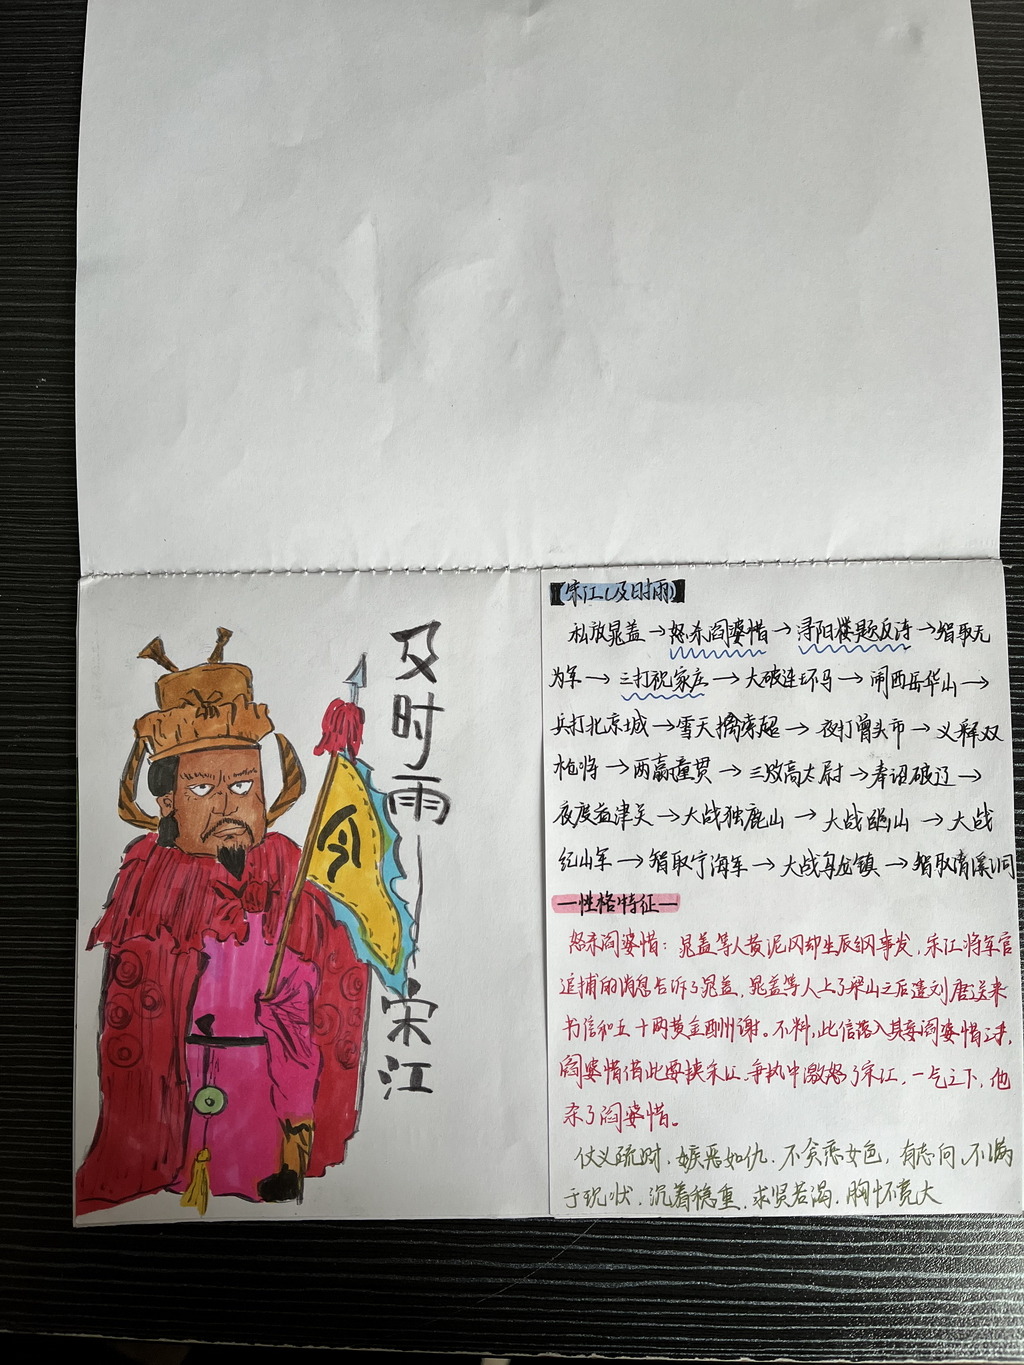 及时雨——宋江
令
【宋江(及时雨)】
私放晁盖→怒杀阎婆惜→浔阳楼题反诗→智取无
为军→三打祝家庄→大破连环马→闹西岳华山→
兵打北京城→雪天擒索超→夜打曾头市→义释双
枪将→两赢童贯→三败高太尉→奉诏破辽→
夜度益津关→大战独鹿山→大战幽山→大战
红山军→智取宁海军→大战乌龙镇→智取清溪洞
—性格特征—
怒杀阎婆惜:晁盖等人黄泥冈劫生辰纲事发,宋江将军官
追捕的消息告诉了晁盖,晁盖等人上了梁山之后遣刘唐送来
书信和五十两黄金酬谢。不料,此信落入其妾阎婆惜之手,
阎婆惜借此要挟宋江,争执中激怒了宋江,一气之下,他
杀了阎婆惜。
仗义疏财,嫉恶如仇,不贪恋女色,有志向,不满
于现状,沉着稳重,求贤若渴,胸怀宽大